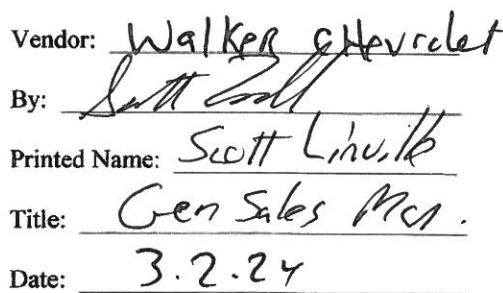 Vendor: Walker Chevrolet
By:
Printed Name: Scott Linville
Title: Gen Sales Mgr.
Date: 3.2.24